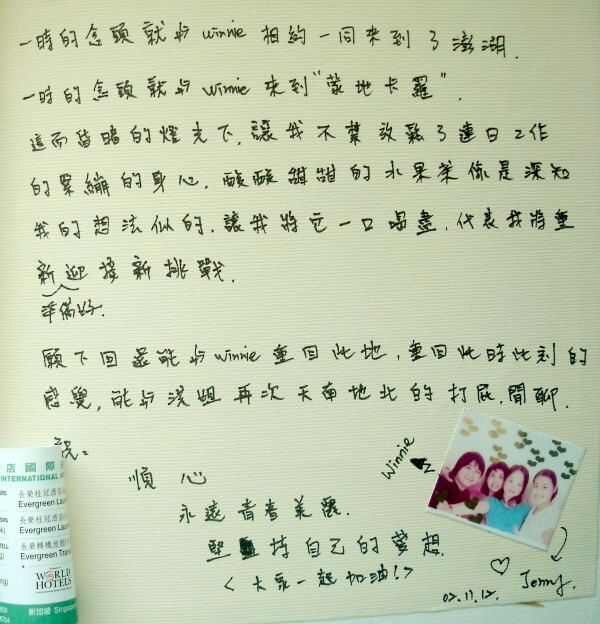 一時的念頭就与winnie相約一同來到了澎湖.
一時的念頭就与winnie來到"蒙地卡羅".
這而昏暗的燈光下,讓我不禁放鬆了連日工作
的緊繃的身心.酸酸甜甜的水果茶像是深知
我的想法似的.讓我將它一口喝盡.代表我將重
新迎接新挑戰.
準備好.
願下回還能与winnie重回此地,重回此時此刻的
感覺,能与淺姐再次天南地北的打屁,閒聊.
祝:
順心
永遠青春美麗.
堅持自己的夢想.
<大家一起加油!>
Winnie
Jenny.
02.11.12.
店國際
INTERNATIONAL
長榮桂冠酒
Evergreen Lau
長榮桂冠酒
Evergreen Laur
長榮轉機旅館
Evergreen Trans
WORLD
HOTELS
新加坡 Singap